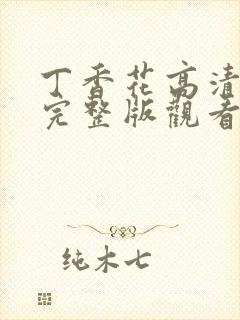 丁香花高清
完整版觀看
纯木七